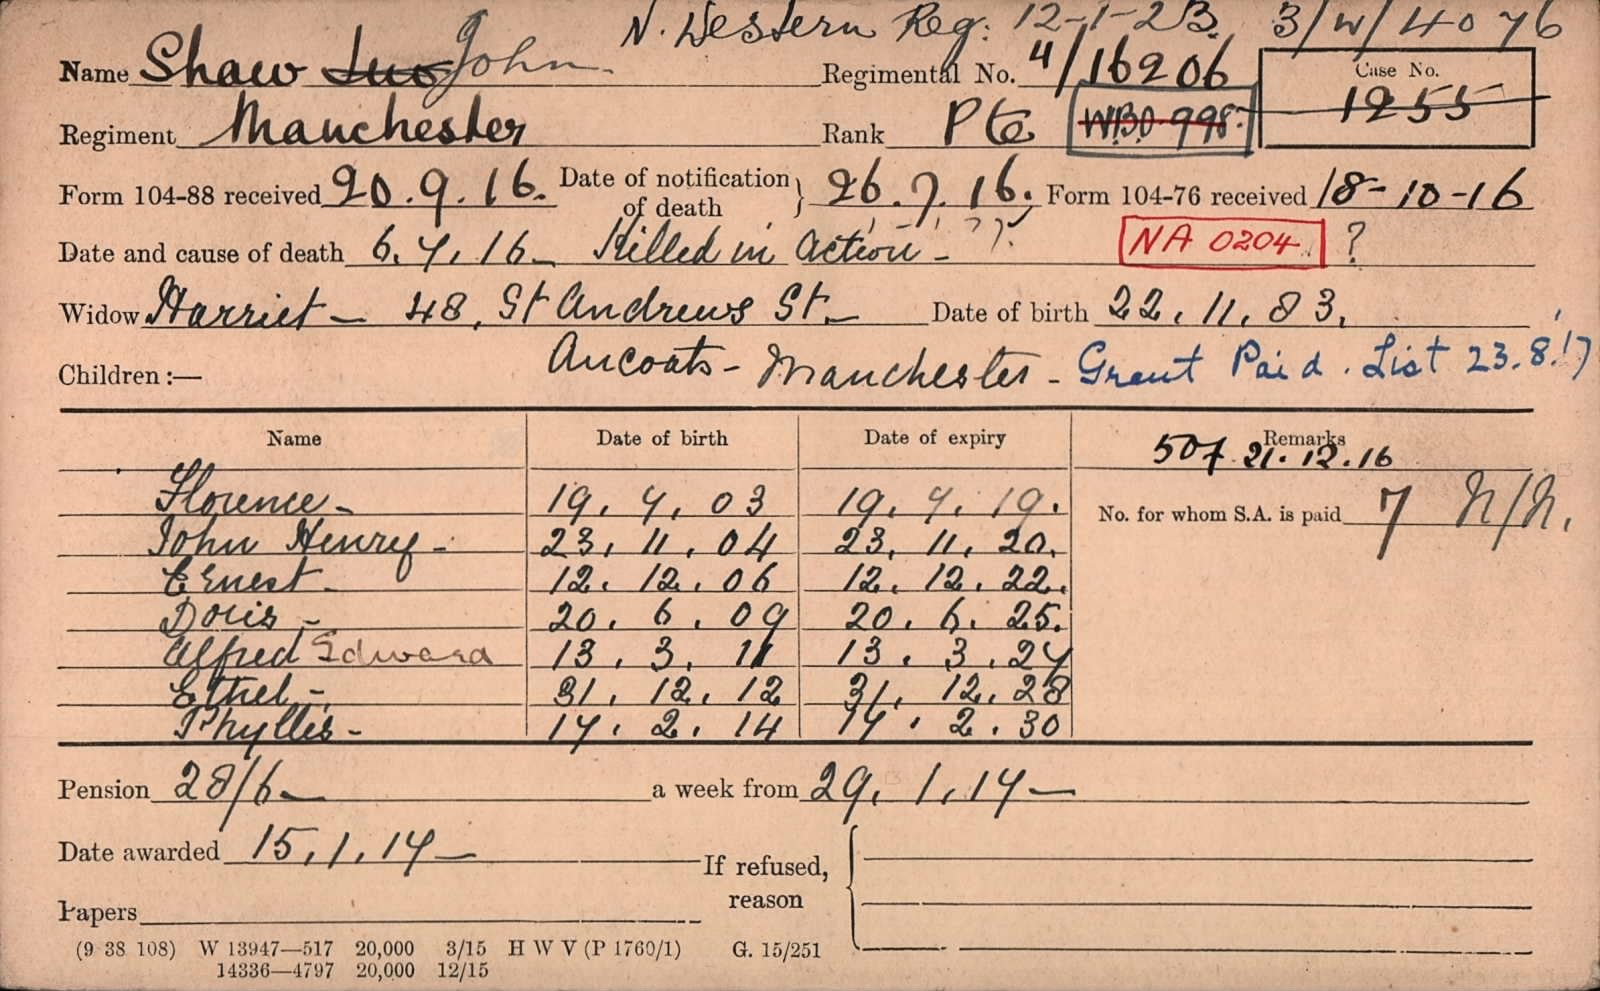 N. Western Reg: 12-1-23. 3/W/4076
Name Shaw John Regimental No. 4/16206 Case No.
Regiment Manchester Rank Pte W.B.O. 998. 1255
Form 104-88 received 20.9.16. Date of notification of death } 26.7.16. Form 104-76 received 18-10-16
Date and cause of death 6.7.16 - Killed in Action - ??. NA 0204 ?
Widow Harriet - 48, St Andrews St. - Date of birth 22.11.83.
Children :— Ancoats - Manchester - Grant Paid. List 23.8.17
Name Date of birth Date of expiry Remarks
507 21.12.16
Florence - 19.7.03 19.7.19. No. for whom S.A. is paid 7 N/N.
John Henry - 23.11.04 23.11.20.
Ernest - 12.12.06 12.12.22.
Doris - 20.6.09 20.6.25.
Alfred Edward 13.3.11 13.3.27
Ethel - 31.12.12 31.12.28
Phyllis - 17.2.14 17.2.30
Pension 28/6 - a week from 29.1.17 -
Date awarded 15.1.17 -
If refused, reason
Papers
(9 38 108) W 13947—517 20,000 3/15 H W V (P 1760/1) G. 15/251
14336—4797 20,000 12/15